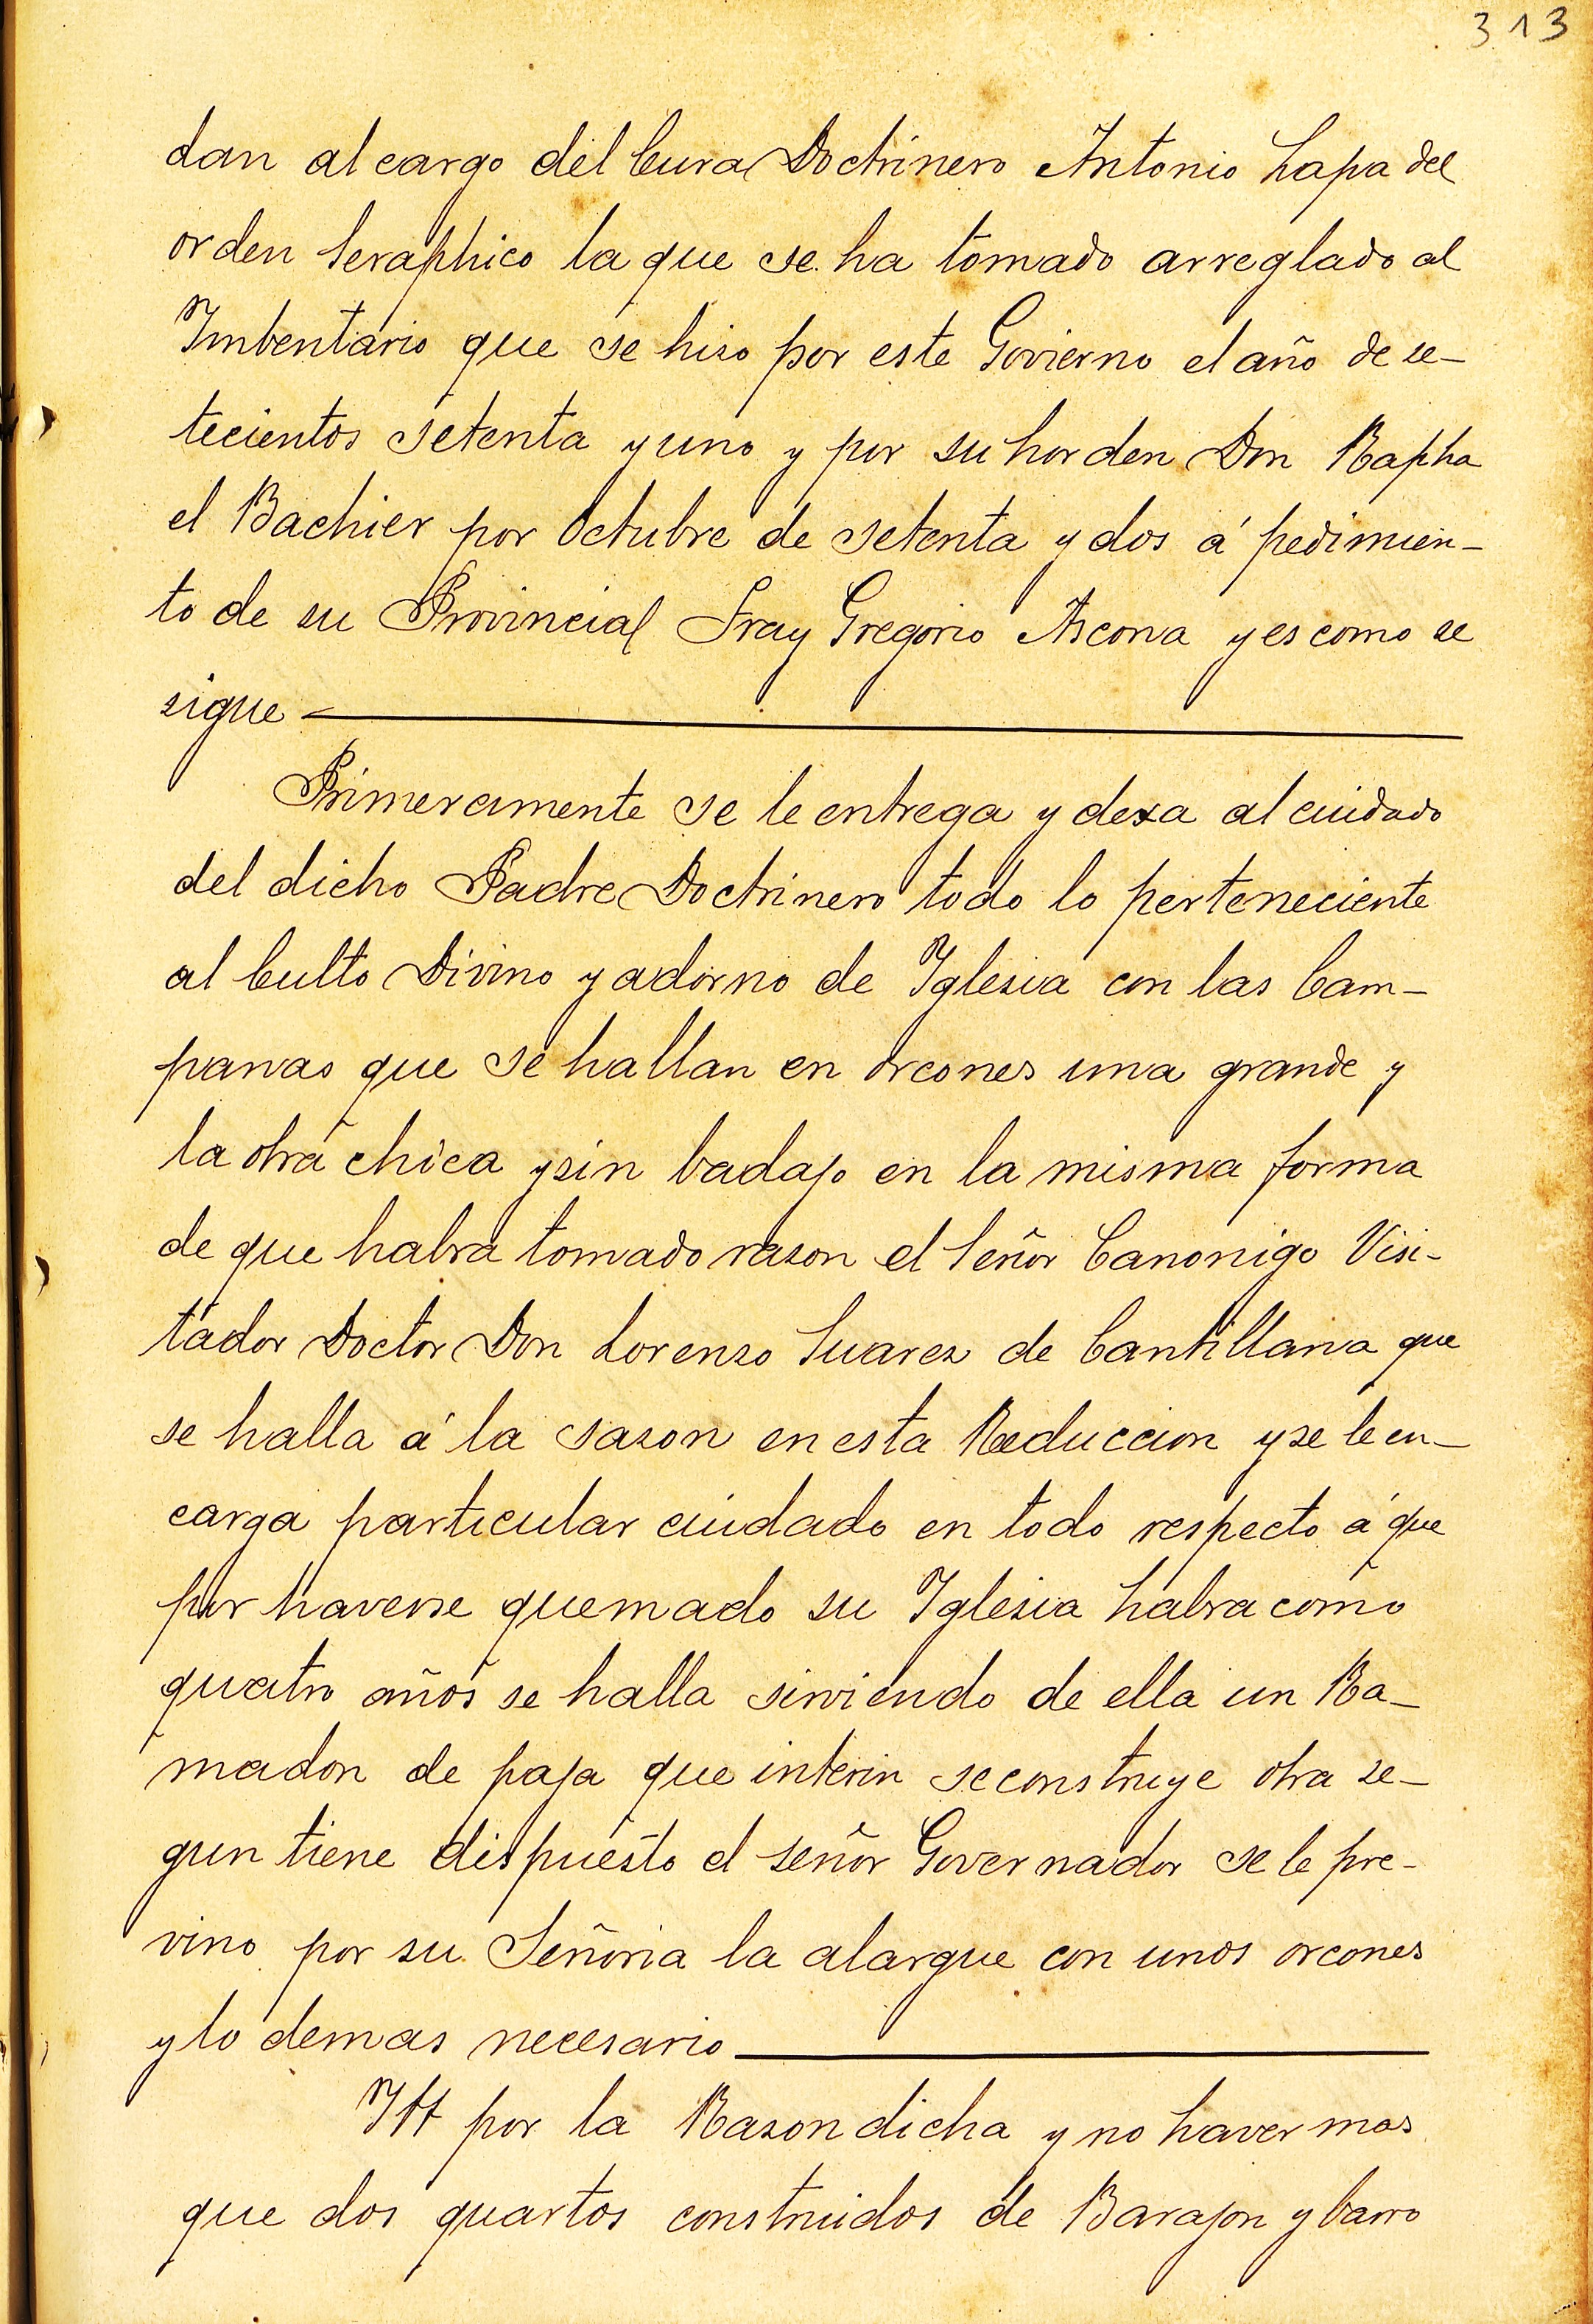 313
dan al cargo del Cura Doctrinero Antonio Lapa del
orden Seraphico la que se ha tomado arreglado al
Imbentario que se hiso por este Govierno el año de se-
tecientos setenta y uno y por su horden Don Rapha
el Bachier por Octubre de setenta y dos á pedimien-
to de su Provincial Fray Gregorio Ascona y es como se
sigue
Primeramente se le entrega y dexa al cuidado
del dicho Padre Doctrinero todo lo perteneciente
al Culto Divino y adorno de Iglesia con las Cam-
panas que se hallan en orcones una grande y
la otra chica y sin badajo en la misma forma
de que habra tomado rason el Señor Canonigo Visi-
tador Doctor Don Lorenso Suares de Cantillana que
se halla á la sason en esta Reduccion y se le en-
carga particular cuidado en todo respecto á que
por haverse quemado su Iglesia habra como
quatro años se halla sirviendo de ella un Ra-
madon de paja que interin se construye otra se-
gun tiene dispuesto el señor Governador se le pre-
vino por su Señoria la alargue con unos orcones
y lo demas necesario
Itt por la Rason dicha y no haver mas
que dos quartos construidos de Barajon y barro